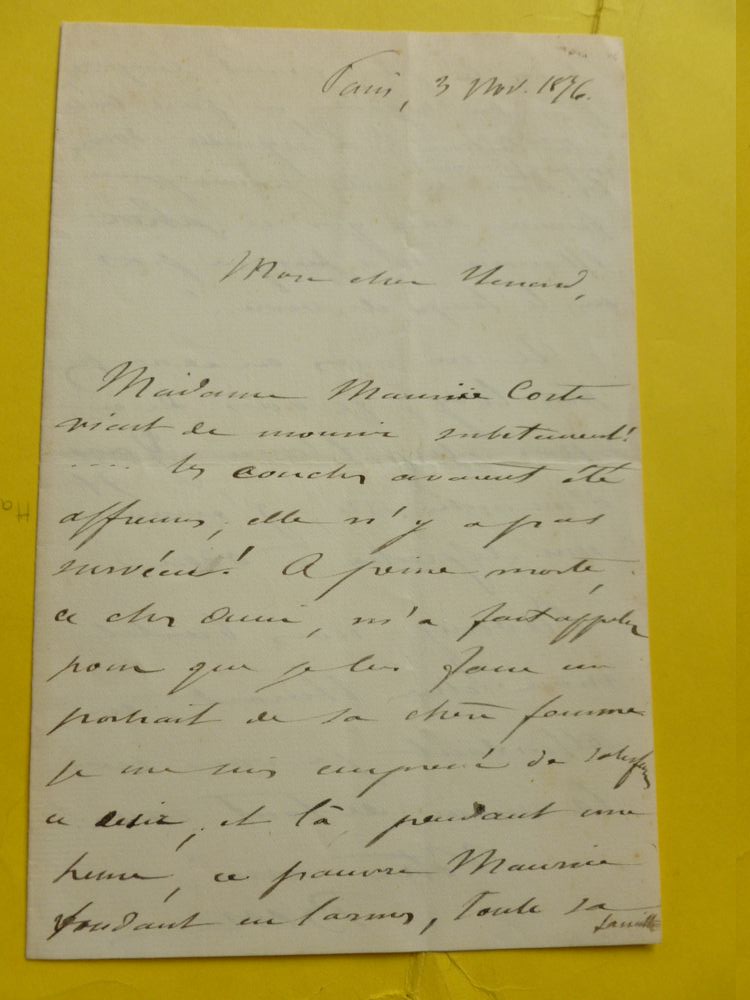 Paris, 3 Nov. 1876.
Mon cher
Madame Maurice Coste
vient de mourir subitement!
.... les couches avaient été
affreuses, elle n'y a pas
survécu! A peine morte,
ce cher ami, m'a fait appeler
pour que je lui fasse un
portrait de sa chère femme
je me suis empressé de satisfaire
ce désir, et là, pendant une
heure, ce pauvre Maurice
fondant en larmes, toute sa
famille